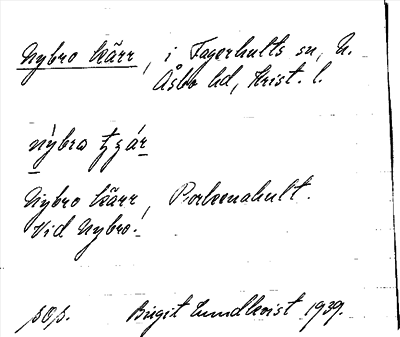 Nybro Kärr, i Fagerhults sn, N.
Åsbo hd, Krist. l.
nỳbro
Nybro Kärr, Porkenahult.
Vid Nybro.!
Birgit Lundkvist 1939.